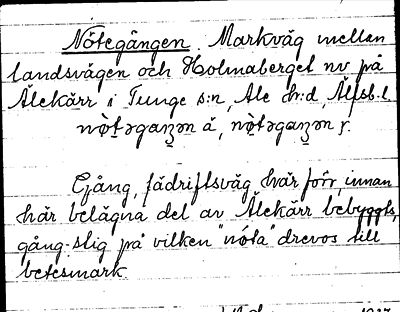 Nötegången. Markväg mellan
landsvägen och Holmaberget nv på
Älekärr i Tunge s:n, Ale hr:d, Älfsb.l.
nò̤t̯əgaŋʒən ä, nò̤təgaŋʒən y.
Gång, fädriftsväg, där förr, innan
här belägna del av Älekärr bebyggts,
gång-stig på vilken "nó̤ta" drevos till
betesmark.